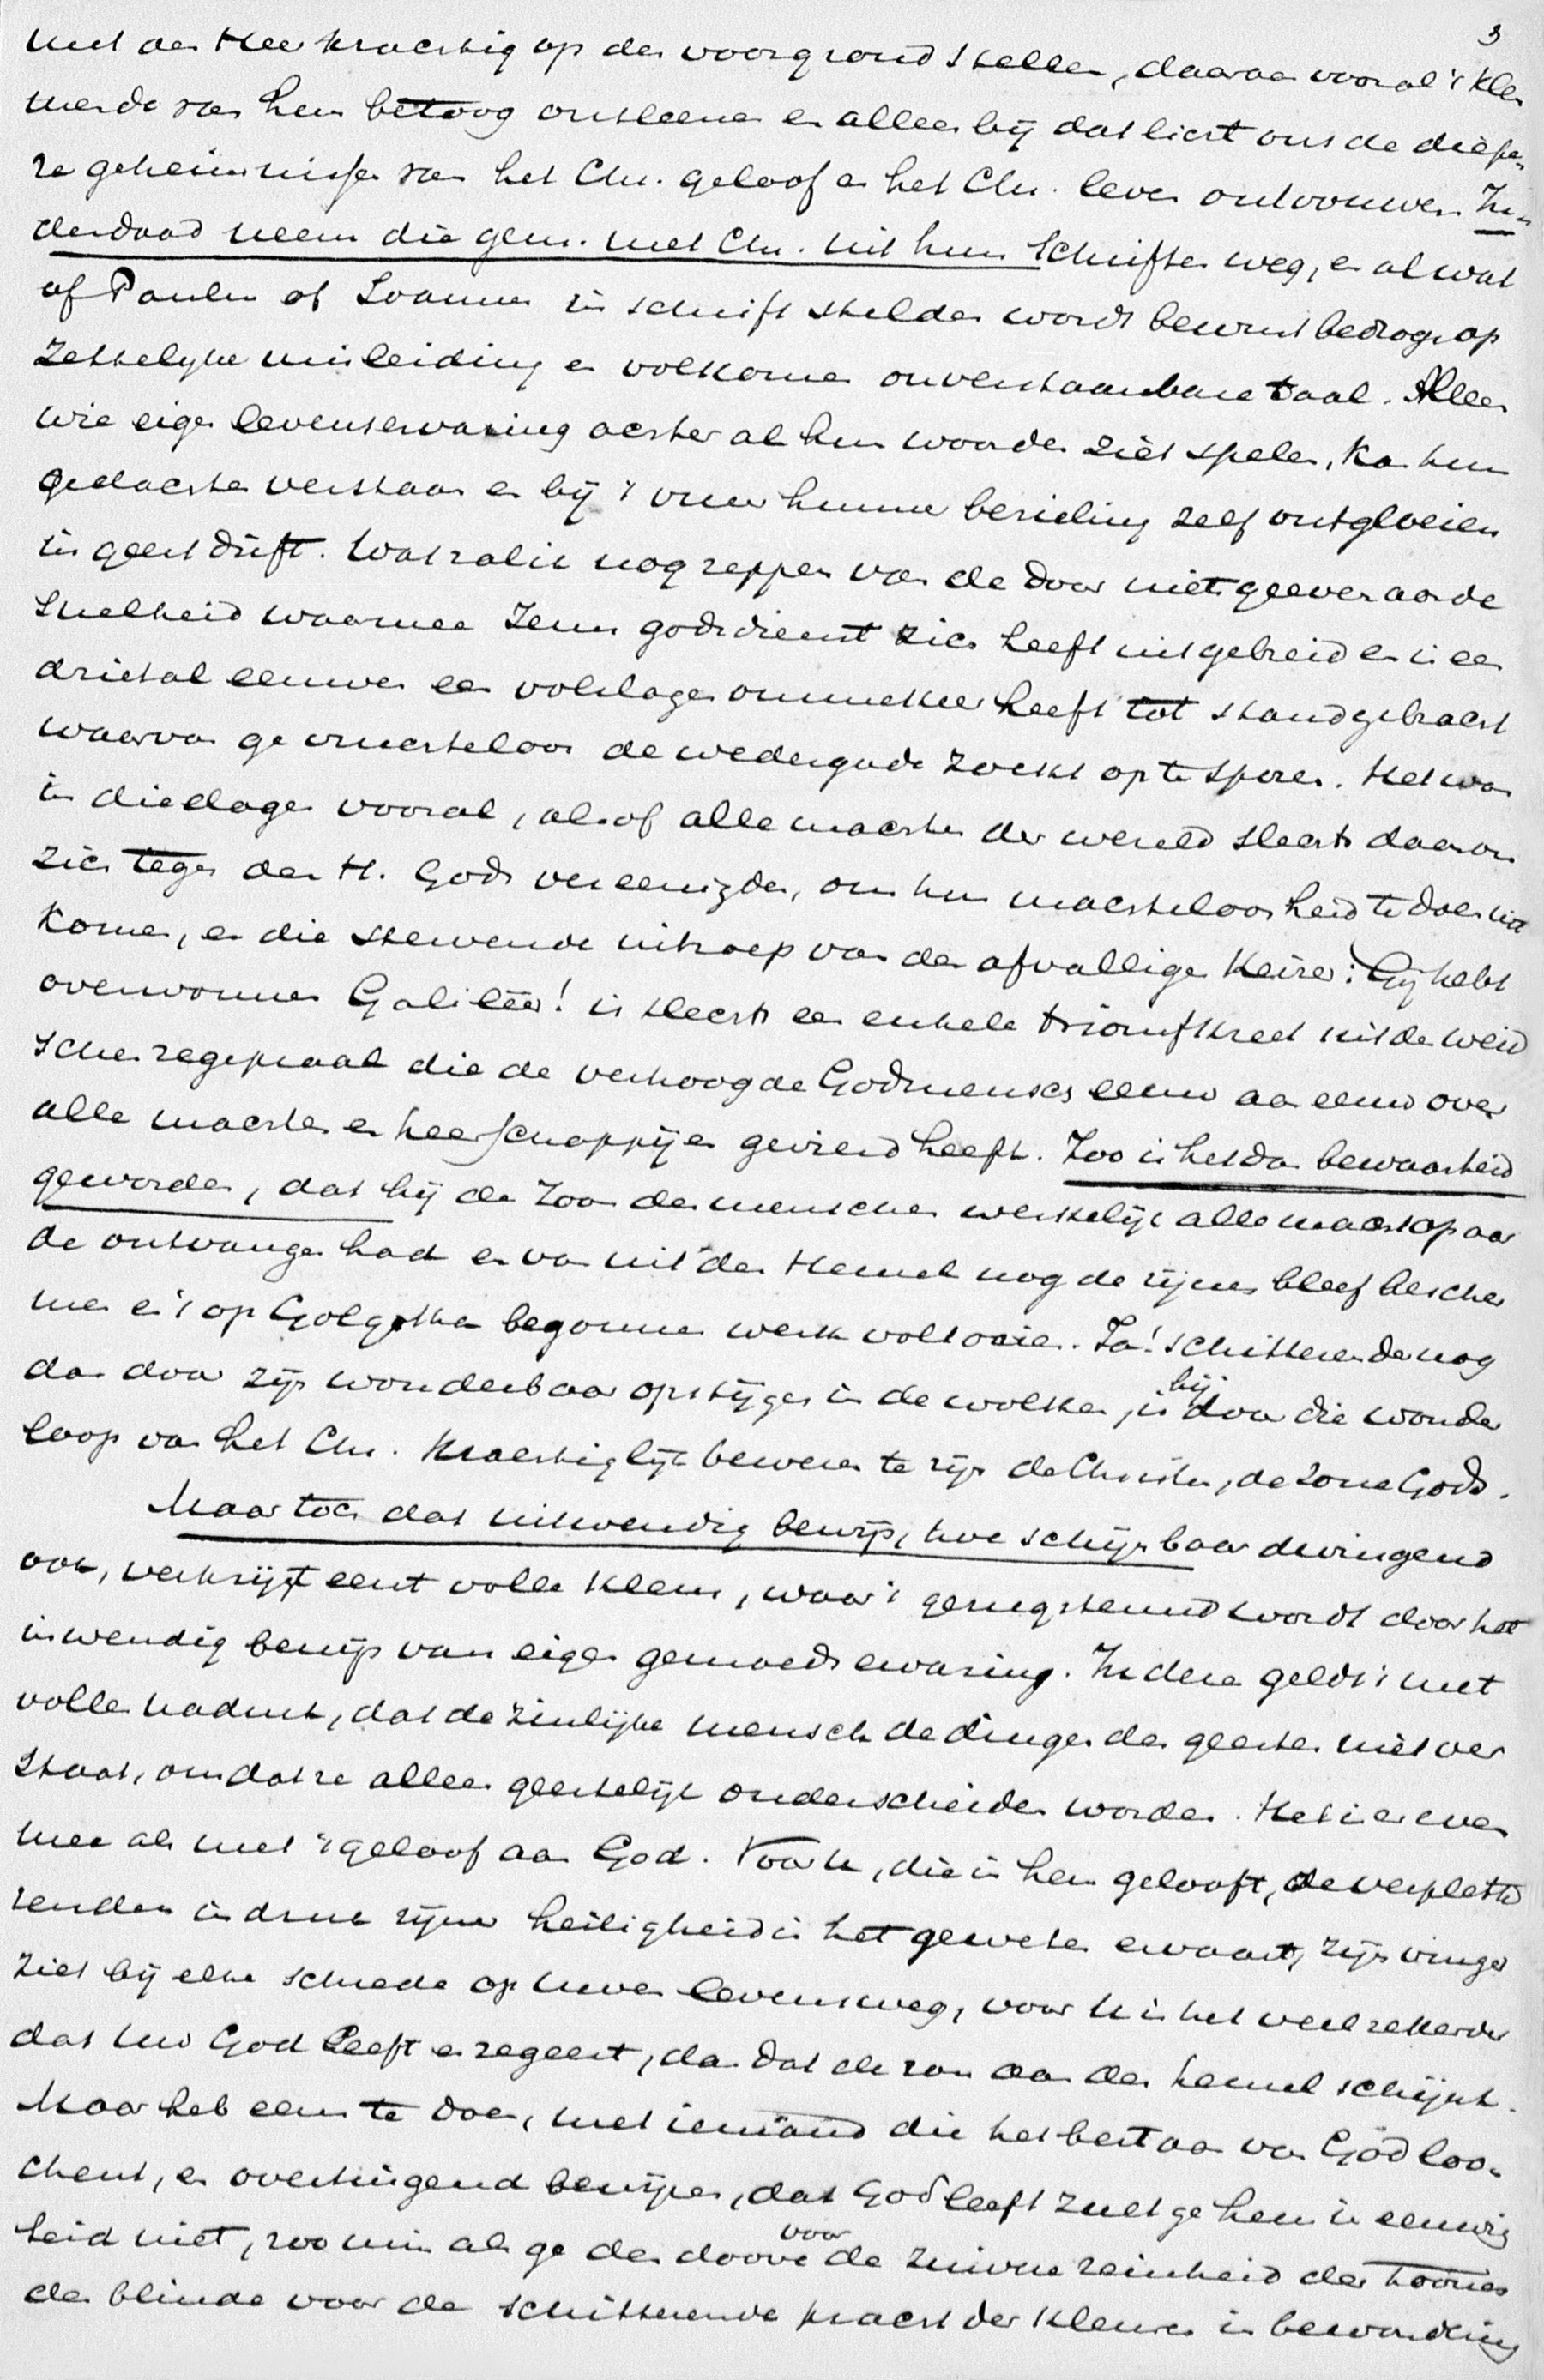 3
met den Heer krachtig op den voorgrond stellen, daaraan vooral 't klem
mende van hun betoog ontleenen en alleen bij dat licht ons de diepe
re geheimnissen van het Chr. geloof en het Chr. leven ontvouwen. In
derdaad neem die gem. met Chr. uit hun schriften weg, en al wat
of Paulus of Joannes in schrift stelden wordt bewust bedrog, op
zettelijke misleiding en volkomen onverstaanbare taal. Alleen
wie eigen levenservaring achter al hun woorden ziet spelen, kan hun
gedachten verstaan en bij 't vuur hunner bezieling zelf ontgloeien
in geestdrift. Wat zal ik nog reppen van de door niets geevenaarde
snelheid waarmee Jezus godsdienst zich heeft uitgebreid en in een
drietal eeuwen een volslagen ommekeer heeft tot stand gebracht
waarvan ge vruchteloos de wedergade zoekt op te sporen. Het was
in die dagen vooral, alsof alle machten der wereld slechts daarom
zich tegen den H. Gods vereenigden, om hun machteloosheid te doen uit
komen, en die stervende uitroep van den afvalligen Keizer: Gij hebt
overwonnen Galileër! is slechts een enkele triomfkreet uit de weid
sche zegepraal die de verhoogde Godmensch eeuw aan eeuw over
alle machten en heerschappijen gevierd heeft. Zoo is het dan bewaarheid
geworden, dat hij de Zoon des menschen werkelijk alle macht op aar
de ontvangen had en van uit den Hemel nog de zijnen bleef bescher
men en 't op Golgotha begonnen werk voltooien. Ja! schitterender nog
dan door zijn wonderbaar opstijgen in de wolken, is hij door die wonder
loop van het Chr. krachtiglijk bewezen te zijn de Christus, de Zone Gods.
Maar toch dat uitwendig bewijs, hoe schijnbaar dwingend
ook, verkrijgt eerst volle klem, waar 't gerugsteund wordt door het
inwendig bewijs van eigen gemoedservaring. In deze geldt 't met
vollen nadruk, dat de zinlijke mensch de dingen des geestes niet ver
staat, omdat ze alleen geestelijk onderscheiden worden. Het is er even
mee als met 't geloof aan God. Voor U, die in hem gelooft, de verplette
renden indruk zijner heiligheid in het geweten ervaart, zijn vinger
ziet bij elke schrede op Uwen levensweg, voor U is het veel zekerder
dat Uw God leeft en regeert, dan dat de zon aan den hemel schijnt.
Maar heb eens te doen, met iemand die het bestaan van God loo-
chent, en overtuigend bewijzen, dat God leeft zult ge hem in eeuwig
heid niet, zoo min als ge den doove voor de zuivere reinheid der toonen
den blinde voor de schitterende pracht der kleuren in bewondering